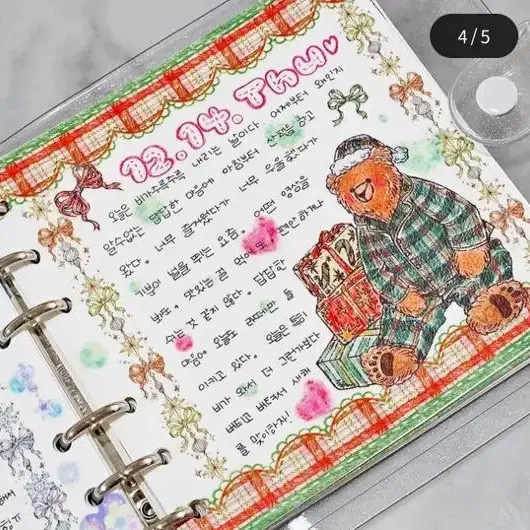 4/5
12.14.THU♡
오늘은 비가 추적추적 내리는 날이다. 어제부터 왜인지
알 수 없는 답답한 마음에 아침부터 산책을 하고
왔다. 너무 즐거웠다가 너무 우울했다가
기분이 널을 뛰는 요즘. 어떤 영상을
봐도, 맛있는 걸 먹어도, 편안하거나
수는 것 같지 않다. 답답한
마음에 오늘도 라떼만 들
이키고 있다. 오늘은 특히
비가 와서 더 그런가보다
버티고 버텨서 새해
를 맞이하자!